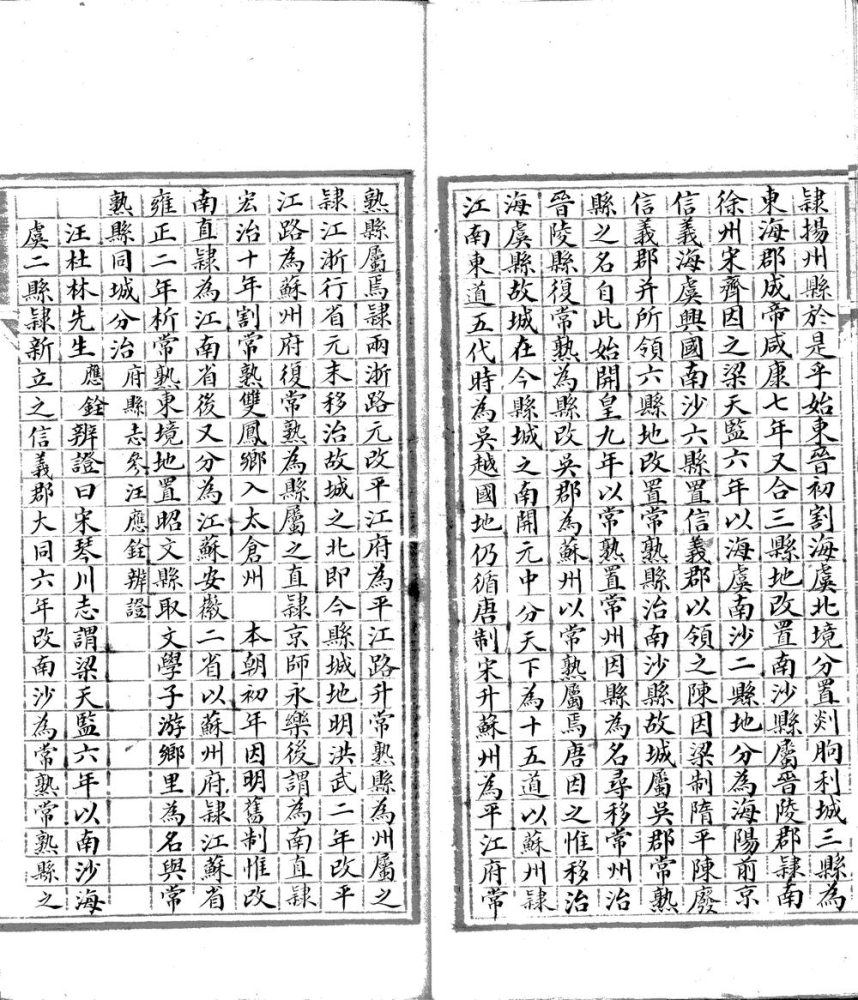 隷揚州縣於是乎始東晉初割海虞北境分置郯朐利城三縣為
東海郡成帝咸康七年又合三縣地改置南沙縣屬晉陵郡隷南
徐州宋齊因之梁天監六年以海虞南沙二縣地分為海陽前京
信義海虞興國南沙六縣置信義郡以領之陳因梁制隋平陳廢
信義郡并所領六縣地改置常熟縣治南沙縣故城屬吳郡常熟
縣之名自此始開皇九年以常熟置常州因縣為名尋移常州治
晉陵縣復常熟為縣改吳郡為蘇州以常熟屬焉唐因之惟移治
海虞縣故城在今縣城之南開元中分天下為十五道以蘇州隷
江南東道五代時為吳越國地仍循唐制宋升蘇州為平江府常
熟縣屬焉隷兩浙路元改平江府為平江路升常熟縣為州屬之
隷江浙行省元末移治故城之北即今縣城地明洪武二年改平
江路為蘇州府復常熟為縣屬之直隷京師永樂後謂為南直隷
宏治十年割常熟雙鳳鄉入太倉州 本朝初年因明舊制惟改
南直隷為江南省後又分為江蘇安徽二省以蘇州府隷江蘇省
雍正二年析常熟東境地置昭文縣取文學子游鄉里為名與常
熟縣同城分治府縣志參汪應銓辨證
汪杜林先生應銓辨證曰宋琴川志謂梁天監六年以南沙海
虞二縣隷新立之信義郡大同六年改南沙為常熟常熟縣之